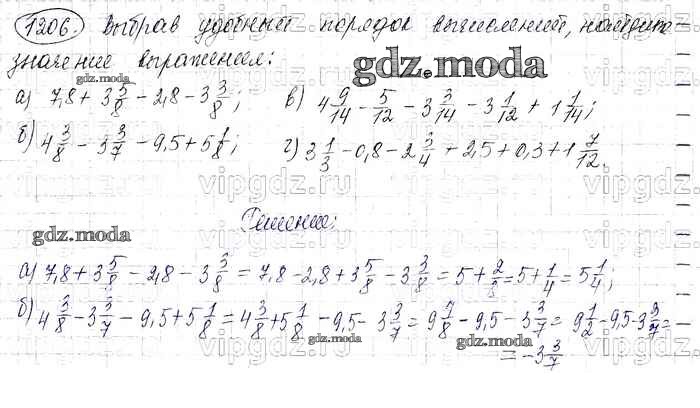 1206. Выбрав удобный порядок вычислений, найдите
значение выражения:
gdz.moda
а) 7,8 + 3 5/8 - 2,8 - 3 3/8; в) 4 9/14 - 5/12 - 3 3/14 - 3 1/12 + 1 1/14;
б) 4 3/8 - 3 3/7 - 9,5 + 5 1/8; г) 3 1/3 - 0,8 - 2 3/4 + 2,5 + 0,3 + 1 7/12.
vipgdz.ru vipgdz.ru vipgdz.ru
Решение:
gdz.moda
а) 7,8 + 3 5/8 - 2,8 - 3 3/8 = 7,8 - 2,8 + 3 5/8 - 3 3/8 = 5 + 2/8 = 5 + 1/4 = 5 1/4;
vipgdz.ru vipgdz.ru vipgdz.ru
б) 4 3/8 - 3 3/7 - 9,5 + 5 1/8 = 4 3/8 + 5 1/8 - 9,5 - 3 3/7 = 9 4/8 - 9,5 - 3 3/7 = 9 1/2 - 9,5 - 3 3/7 =
gdz.moda gdz.moda
= -3 3/7
gdz.moda